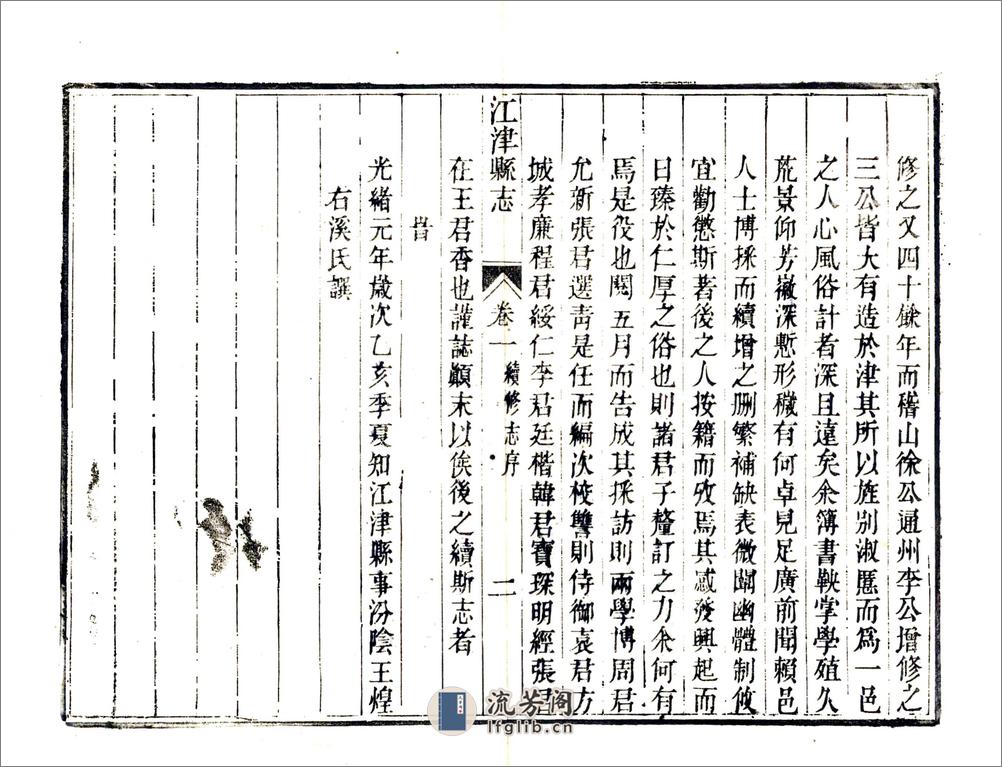 修之又四十餘年而稽山徐公通州李公增修之
三公皆大有造於津其所以旌别淑慝而爲一邑
之人心風俗計者深且遠矣余簿書鞅掌學殖久
荒景仰芳徽深慙形穢有何卓見足廣前聞賴邑
人士博採而續增之删繁補缺表微闡幽體制攸
宜勸懲斯著後之人按籍而攷焉其感發興起而
日臻於仁厚之俗也則諸君子釐訂之力余何有
焉是役也閱五月而告成其採訪則兩學博周君
允新張君選靑是任而編次校讐則侍御袁君方
城孝廉程君綏仁李君廷楷韓君寶琛明經張君
江津縣志
卷一
續修志序
二
在王君香也謹誌顚末以俟後之續斯志者
旹
光緒元年歲次乙亥季夏知江津縣事汾陰王煌
右溪氏譔
流芳阁
lfglib.cn